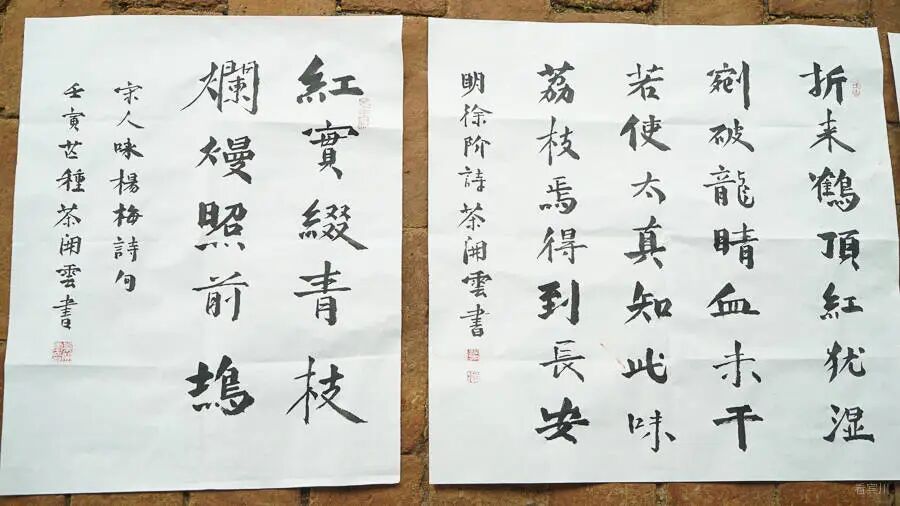 折来鶴頂紅犹湿
剜破龍睛血未干
若使太真知此味
荔枝焉得到長安
明徐阶詩 茶開雲書
紅實綴青枝
爛熳照前塢
宋人咏楊梅詩句
壬寅芒種茶開雲書
看宾川